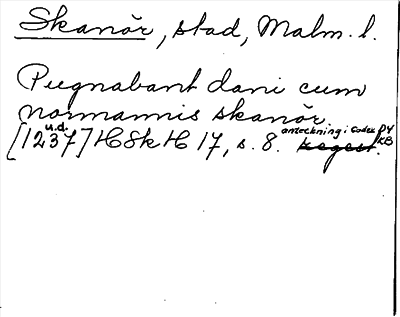 Skanör, stad, Malm. l.
Pugnabant dani cum
normannis skanör.
[1237] u.d. HSkH 17, s. 8. anteckning i Codex D4 KB